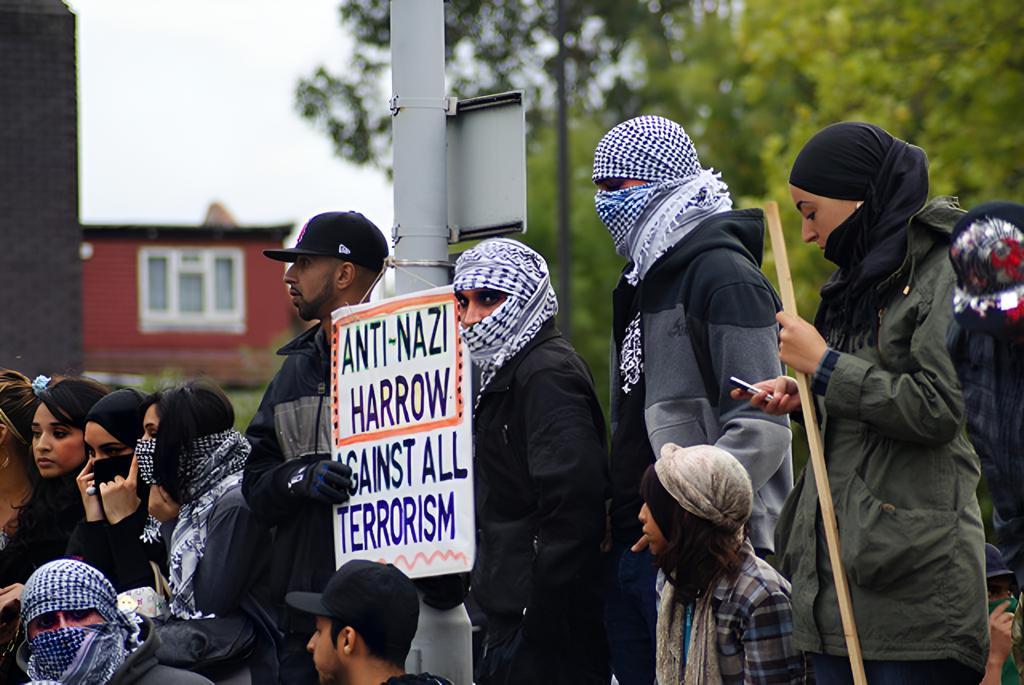 ANTI-NAZI
HARROW
AGAINST ALL
TERRORISM